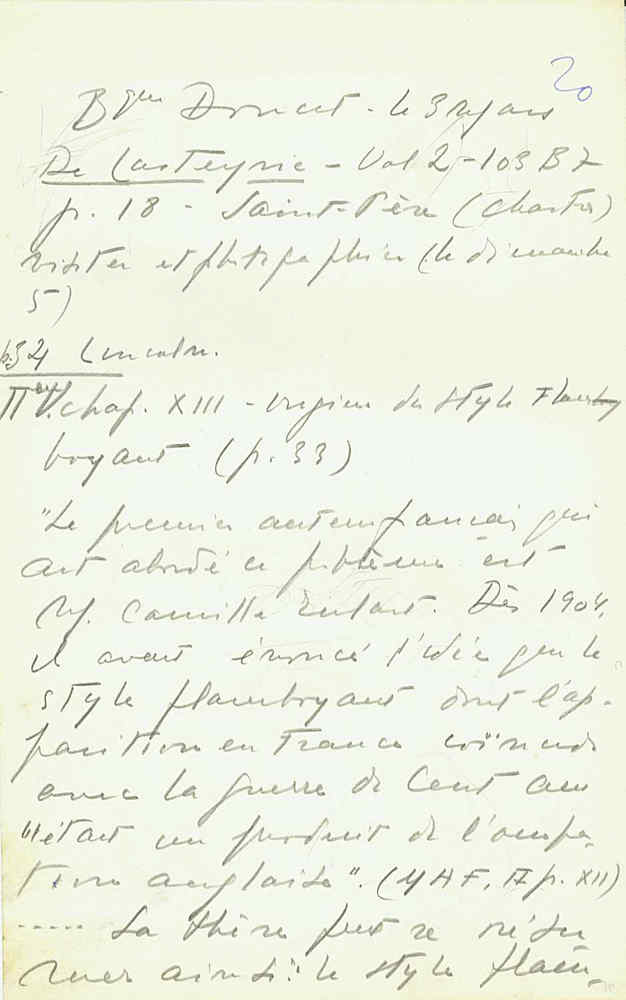 20
Bque Doucet - le 3 mars
De Lasteyrie - Vol 2 - 103 B 7
p. 18 - Saint-Père (Chartres)
visiter et photographier (le dimanche
5)
p.34 Lincoln.
chap. XIII - origine du style Flam
boyant (p. 33)
"Le premier auteur français qui
ait abordé ce problème est
M. Camille Enlart. Dès 1904,
il avait énoncé l'idée que le
style flamboyant dont l'ap-
parition en France coïncide
avec la guerre de Cent ans
"était un produit de l'occupa-
tion anglaise". (p. XII)
..... La thèse peut se résu
mer ainsi: "le style flam-